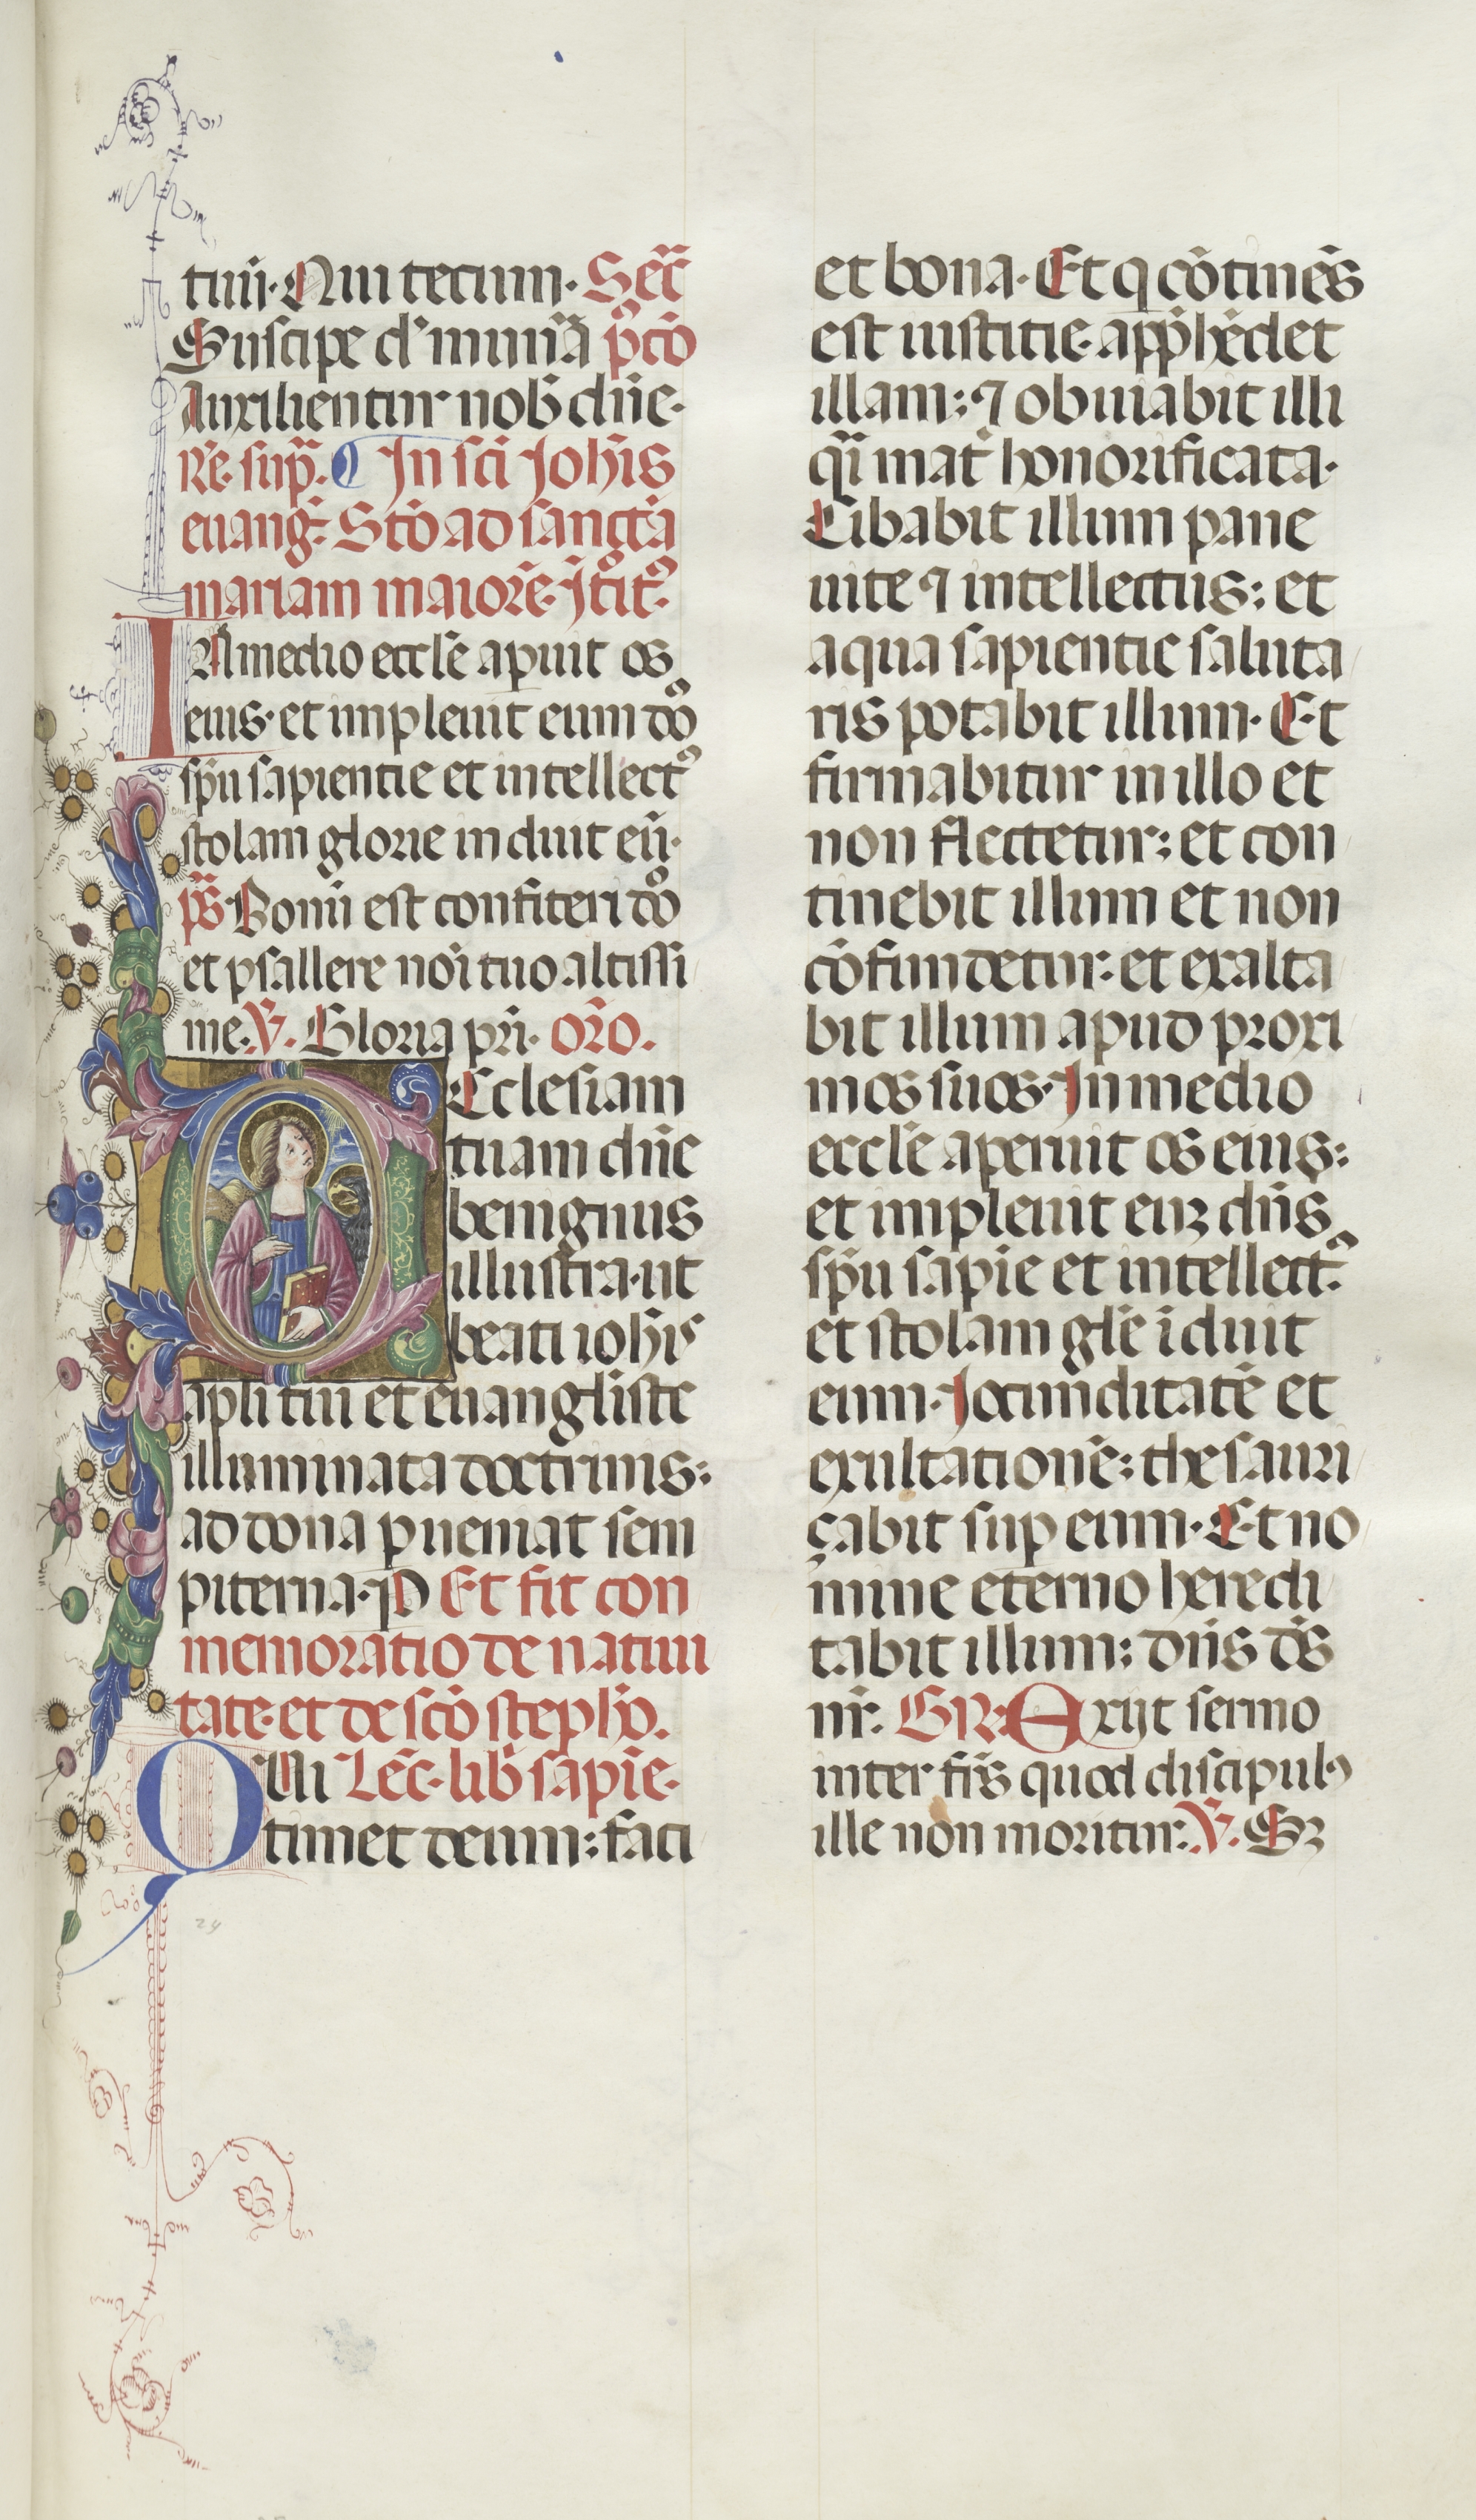 tuũ. Qui tecum. Secr̃
Suscipe dʼ munẽa p̃cõ
Auxilientur nob̃ dñe.
Re sup̃. In sc̃i Joh̃is
euang̃. Stõ ad sanctã
mariam maiorẽ. Jtr̃oitꝰ.
IN medio eccl̃e aꝑuit os
eius. et impleuit eum dñs
sp̃u sapientie et intellectꝰ
stolam glorie induit eũ.
ps̃. Bonũ est confiteri dño
et psallere noĩ tuo altissi
me. ℣. Gloria pr̃i. or̃o.
ECclesiam
tuam dñe
benignus
illustra. ut
beati ioh̃is
apl̃i tui et euangl̃iste
illuminata doctrinis:
ad dona ꝑueniat sem
piterna. ꝑ Et fit con
memoratio de natiui
tate. et de scõ steph̃o.
QUi Lec̃. lib̃ sapiẽ.
timet deum: faci
et bona. Et q̃ cõtinẽs
est iustitie. app̃hẽdet
illam: ⁊ obuiabit illi
q̃i mat̃ honorificata.
Cibabit illum pane
uite ⁊ intellectus: et
aqua sapientie saluta
ris potabit illum. Et
firmabitur in illo et
non flectetur: et con
tinebit illum et non
cõfundetur: et exalta
bit illum apud proxi
mos suos. In medio
eccl̃e aperuit os eius:
et impleuit euꝫ dñs
sp̃u sapiẽ et intellectꝰ.
et stolam gl̃e ĩduit
eum. Jocunditatẽ et
exultationẽ: thesauri
çabit suꝑ eum. Et no
mine eterno heredi
tabit illum: dñs dẽs
nr̃. GR̃. Exijt sermo
inter fr̃s quod discipulꝰ
ille non moritur: ℣. Sꝫ
24